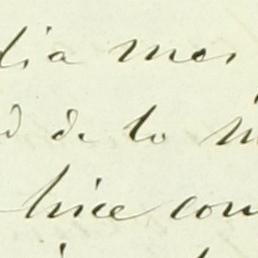 dia mes
d de lo
hice con